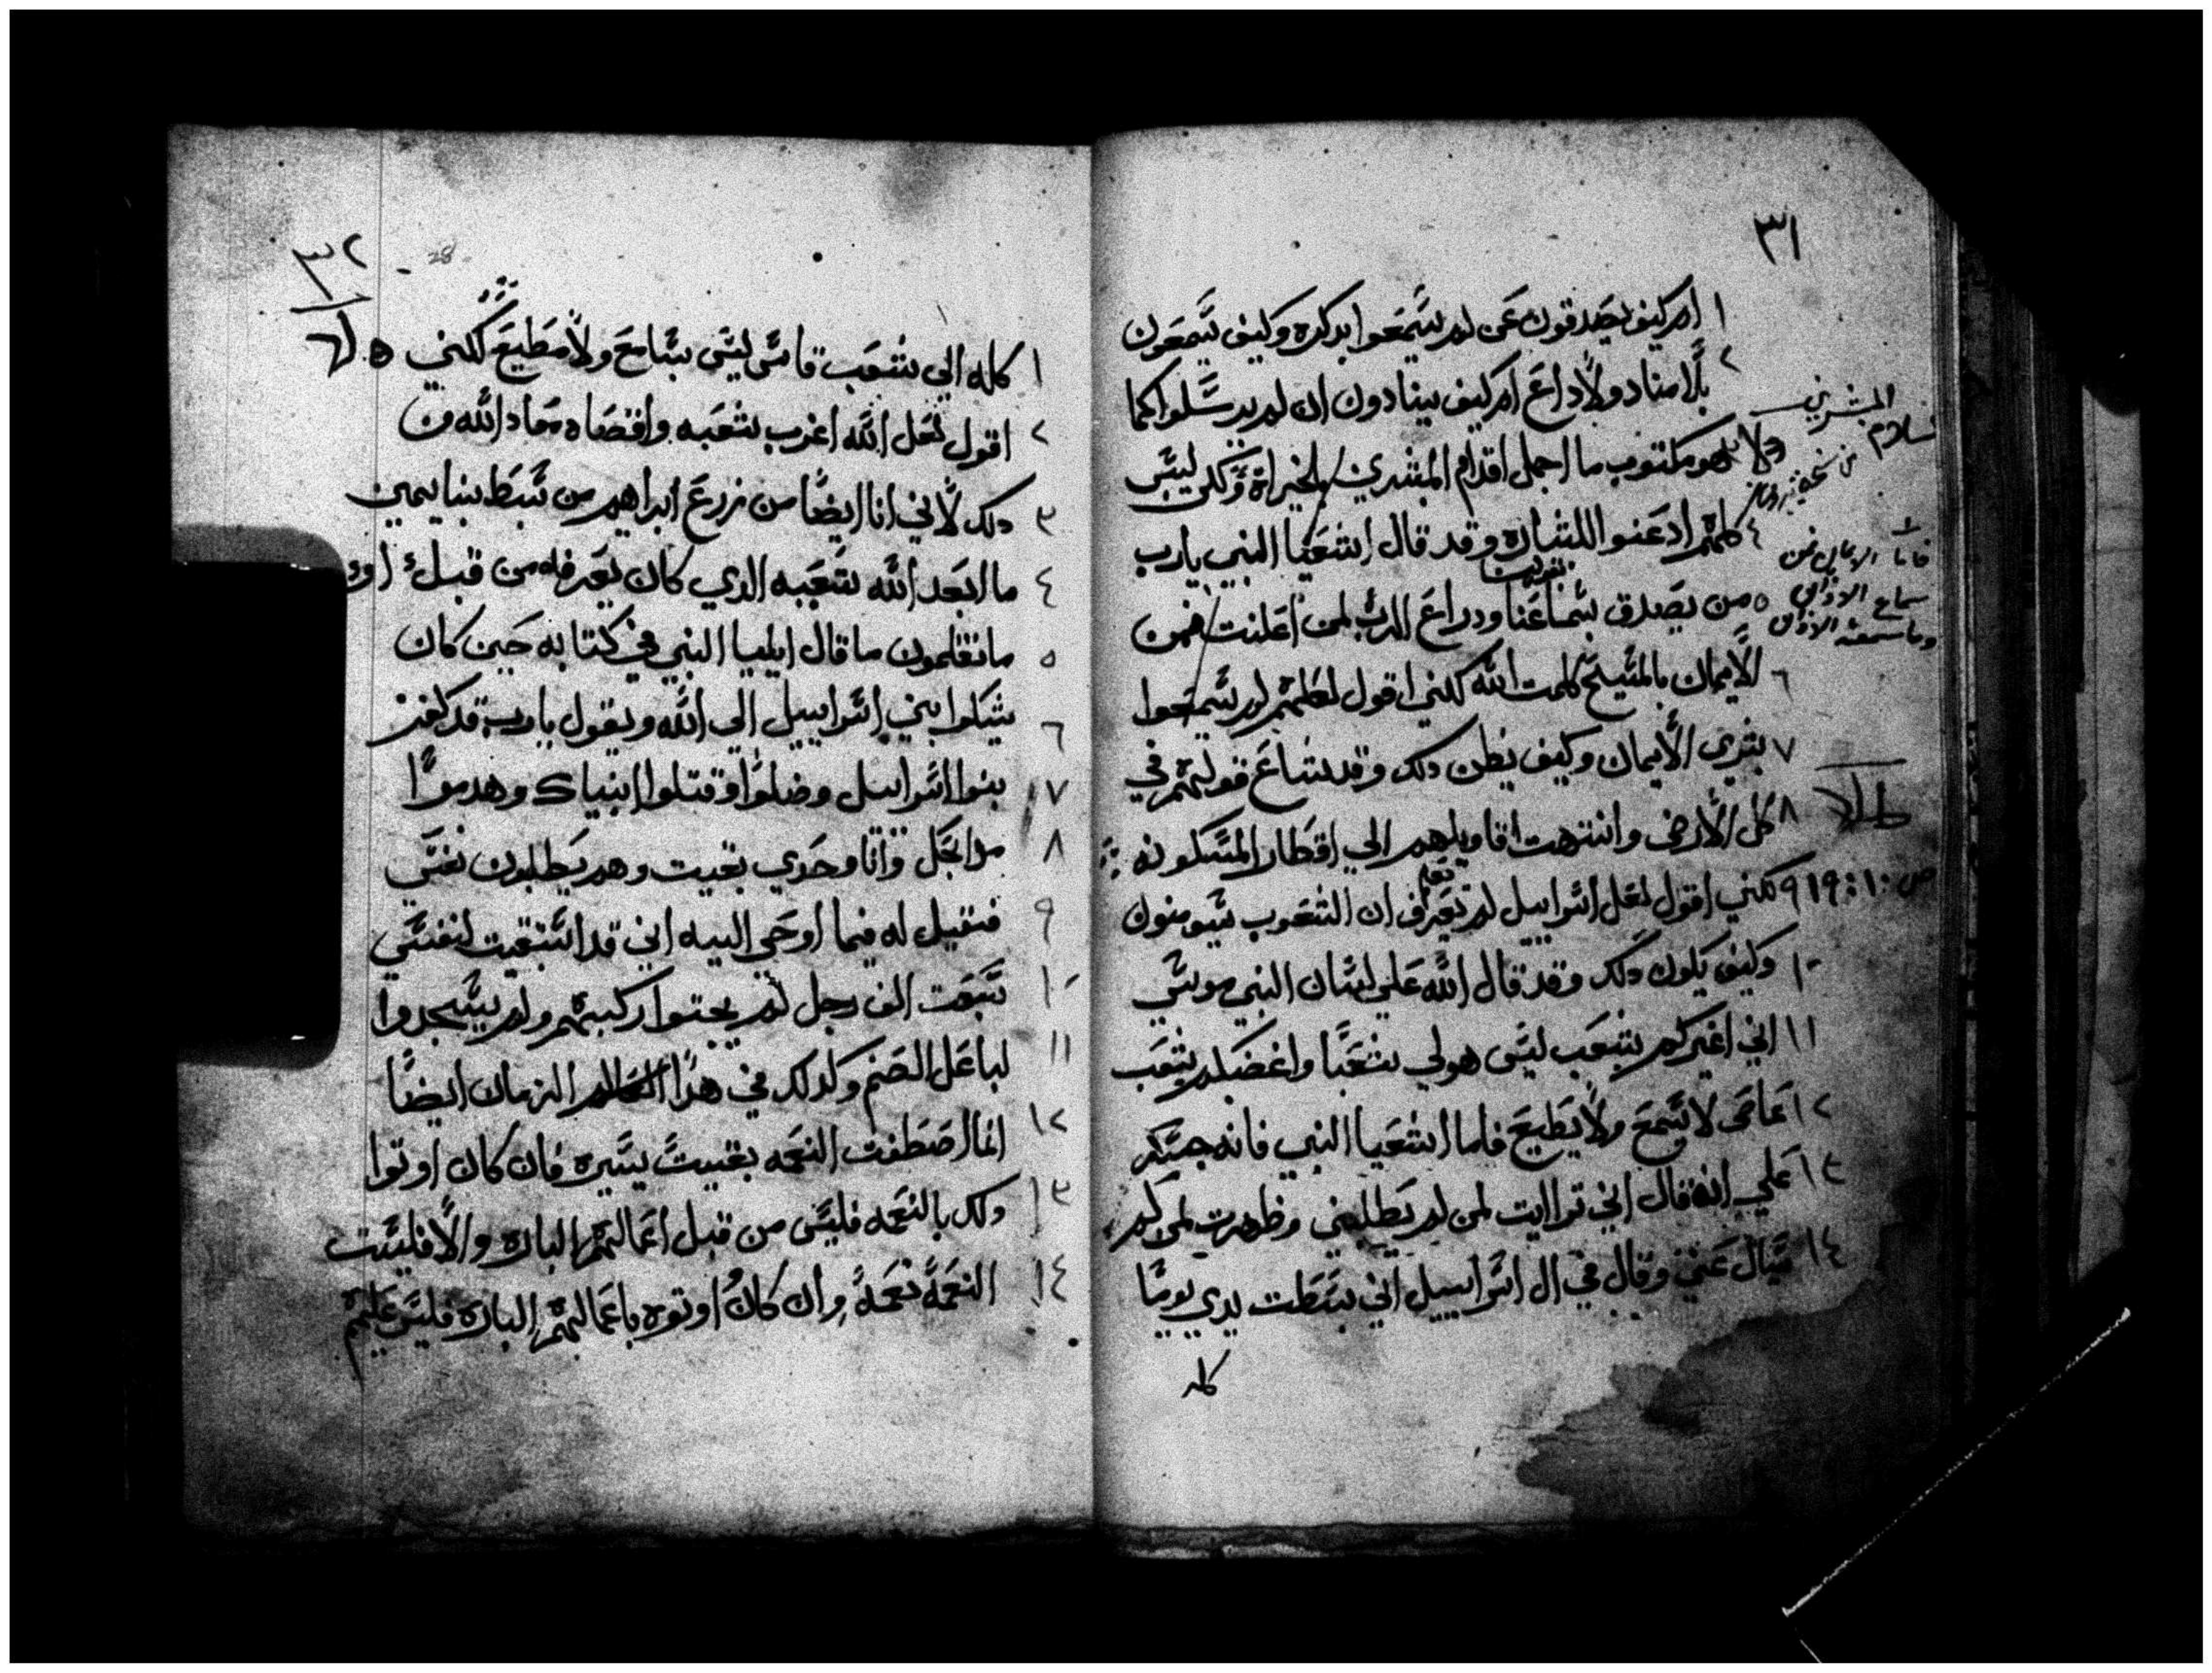 ٣١
١ ام كيف يصدقون عن لم يسمعوا بدكره وكيف يسمعون
٢ بلا مناد ولا داع ام كيف ينادون ان لم يرسلوا كما
هو مكتوب ما اجمل اقدام المبشرين بالخيراة ولكن ليس
المبشرين
٤ كلهم ادعنوا للبشاره وقد قال اشعيا النبي يارب
٥ من يصدق بسماعنا ودراع الرب لمن اعلنت فمن
فاما الايمان فمن
سماع الاذان
وما سمعته الاذان
٦ الايمان بالمسيح كلمت الله لكني اقول لعلهم لم يسمعوا
٧ بشرى الايمان وكيف يظن دلك وقد شاع قولهم في
٨ كل الارض وانتهت اقاويلهم الي اقطار المسكونه
ص ١٠:١٩
٩ لكني اقول لعل اسراييل لم تعرف ان الشعوب سيومنون
١٠ وكيف يكون دلك وقد قال الله علي لسان النبي موسي
١١ اني اغيركم بشعب ليس هو لي شعبا واغضبكم بشعب
١٢ عاصى لا يسمع ولا يطيع فاما اشعيا النبي فانه جسر
١٣ علي انه قال اني تراايت لمن لم يطلبني وظهرت لمن لم
١٤ يسال عني وقال في ال اسراييل اني بسطت يدي يوما
كله
٣٢
28
١ كله الي شعب قاسى ليس بسامع ولا مطيع لكني
٢ اقول لعل الله اغرب شعبه واقصاه معاد الله من
٣ دلك لاني انا ايضا من زرع ابراهيم من سبط بنيايمين
٤ ما ابعد الله شعبه الدي كان يعرفه من قبل او
٥ ما تعلمون ما قال ايليا النبي في كتابه حين كان
٦ يشكوا بني اسراييل الى الله ويقول يا رب قد كفر
٧ بنوا اسراييل وضلوا وقتلوا انبياك وهدموا
٨ مدابحك وانا وحدي بقيت وهم يطلبون نفسي
٩ فقيل له فيما اوحى اليه اني قد استبقيت لنفسي
١٠ سبعت الف رجل لم يجتوا ركبهم ولم يسجدوا
١١ لباعل الصنم وكدلك في هدا الزمان ايضا
١٢ انما اصطفت النعمه بقيت يسيره فان كان اوتوا
١٣ دلك بالنعمه فليس من قبل اعمالهم الباره والا فليست
١٤ النعمة نعمة وان كان اوتوه باعمالهم الباره فليس عليهم